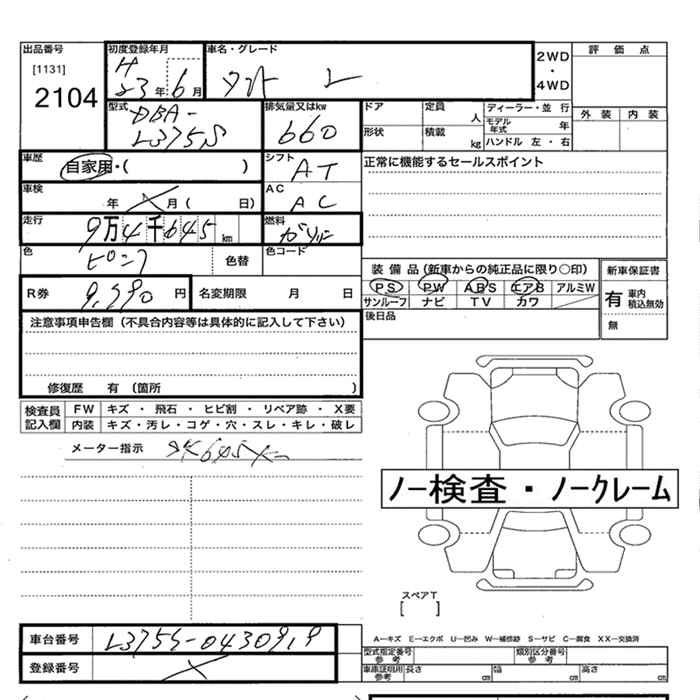 出品番号 初度登録年月 車名・グレード 2WD・4WD 評価点
[1131]
2104
H23年6月 タント L
外装 内装
型式 DBA-L375S
排気量又はkw 660
ドア 定員 人 ディーラー・並行
モデル年式 年
形状 積載 kg ハンドル 左・右
車歴 自家用・( )
シフト AT
正常に機能するセールスポイント
車検 年 月 ( 日)
AC AC
走行 9万4千645km
燃料 ガソリン
色 ピンク 色替 色コード
装備品(新車からの純正品に限り○印) 新車保証書
PS PW ABS エアB アルミW
サンルーフ ナビ TV カワ
有 車内 積込無効
無
R券 円 名変期限 月 日
後日品
注意事項申告欄(不具合内容等は具体的に記入して下さい)
修復歴 有 (箇所 )
検査員記入欄 FW キズ・飛石・ヒビ割・リペア跡・X要
内装 キズ・汚レ・コゲ・穴・スレ・キレ・破レ
メーター指示
ノー検査・ノークレーム
スペアT
[ ]
車台番号 L375S-0430919
登録番号
A−キズ E−エクボ U−凹み W−補修跡 S−サビ C−腐食 XX−交換済
型式指定番号 参考 類別区分番号 参考
車庫証明用 参考 長さ cm 幅 cm 高さ cm